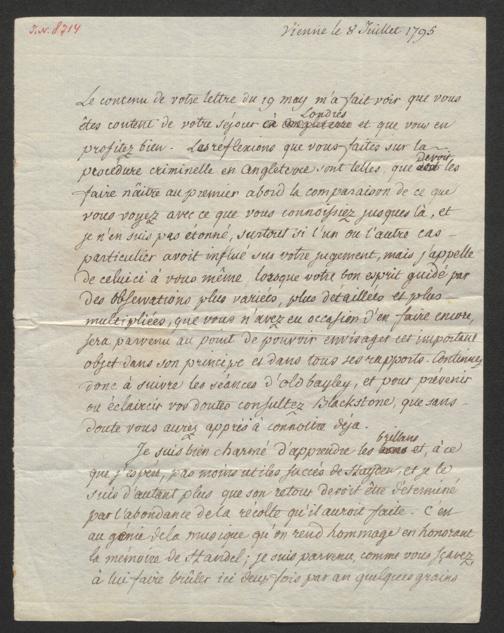 I.N. 8214
Vienne le 8 Juillet 1795
Le contenu de votre lettre du 19 may m'a fait voir que vous
êtes content de votre séjour à Londres et que vous en
profitez bien. Les réflexions que vous faites sur la
procedure criminelle en Angleterre sont telles, que devoit les
faire nâitre au premier abord la comparaison de ce que
vous voyez avec ce que vous connoissiez jusques là, et
je n'en suis pas étonné, surtout si l'un ou l'autre cas
particulier avoit influé sur votre jugement, mais j'appelle
de celuici à vous même, lorsque votre bon esprit guidé par
des observations plus variées, plus detaillées et plus
multipliées, que vous n'avez eu occasion d'en faire encore,
sera parvenu au point de pouvoir envisager cet important
objet dans son principe et dans tous ses rapports. Continuez
donc à suivre les séances d'old bayley, et pour prévenir
ou éclaircir vos doutes consultez Blackstone, que sans
doute vous aurez appris à connoitre déja.
Je suis bien charmé d'apprendre les brillans et, à ce
que j'espere, pas moins utiles succès de Hayden, et je le
suis d'autant plus que son retour devoit être déterminé
par l'abondance de la récolte qu'il auroit faite. C'en
au génie de la musique qu'on rend hommage en honorant
la mémoire de Handel; je suis parvenu, comme vous sçavez,
à lui faire brûler ici deux fois par an quelques grains